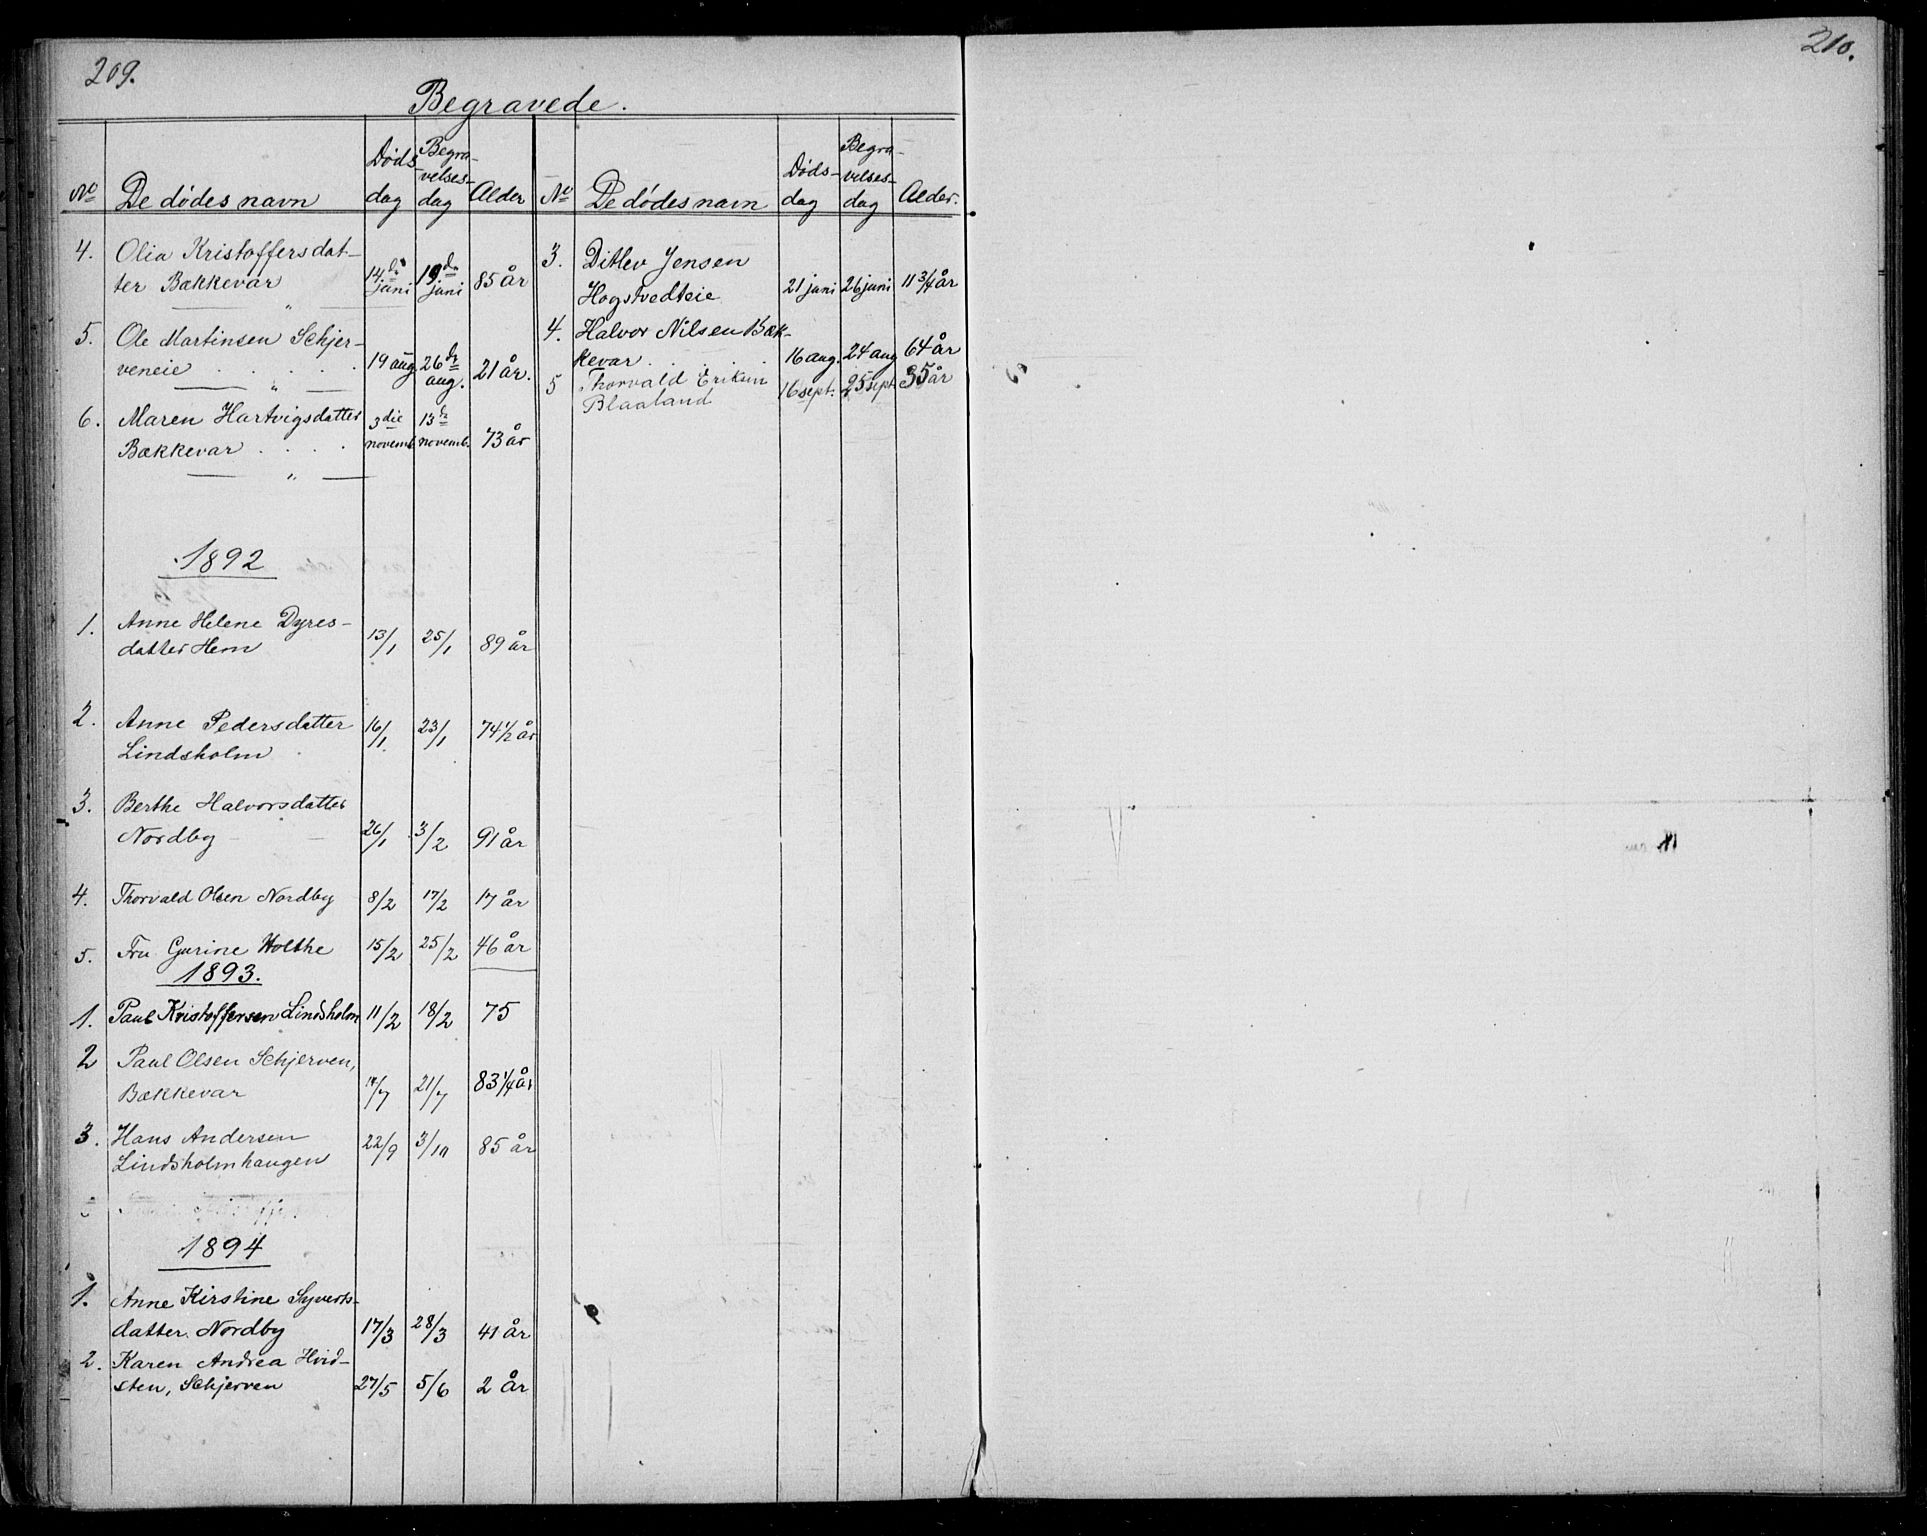 209.
Begravede.
No De dødes navn Døds-dag Begra-velses-dag Alder
4. Olia Kristoffersdat-
ter Bækkevar 14de juni 19de juni 85 år
5. Ole Martinsen Schjer-
veneie . . . . . 19 aug 26de aug. 21 år.
6. Maren Hartvigsdatter 3die 13de
Bækkevar . . . . novemb. novemb. 73 år
1892
1. Anne Helene Dyres-
datter Hem 13/1 25/1 89 år
2. Anne Pedersdatter 16/1 23/1 74 1/2 år
Lindsholm
3. Berthe Halvorsdatter
Nordby 26/1 3/2 91 år
4. Thorvald Olsen Nordby 8/2 17/2 17 år
5. Fru Gurine Holthe 15/2 25/2 46 år
1893.
1. Paul Kristoffersen Lindsholm 11/2 18/2 75
2 Paul Olsen Schjerven,
Bækkevar 21/7 83 1/4 år
3. Hans Andersen 22/9 3/10 85 år
Lindsholmhaugen
1894
1. Anne Kirstine Syverts-
datter. Nordby 17/3 28/3 41 år
2. Karen Andrea Hvid-
sten, Schjerven 27/5 5/6 2 år
No De dødes navn Døds-dag Begra-velses-dag Alder.
3. Ditlev Jensen
Hogstvedteie 21 juni 26 juni 11 3/4 år
4. Halvor Nilsen Bæk-
kevar . . . . . 16 aug. 24 aug 64 år
5 Thorvald Eriksen 16 sept. 25 sept. 35 år
Blaaland
210.